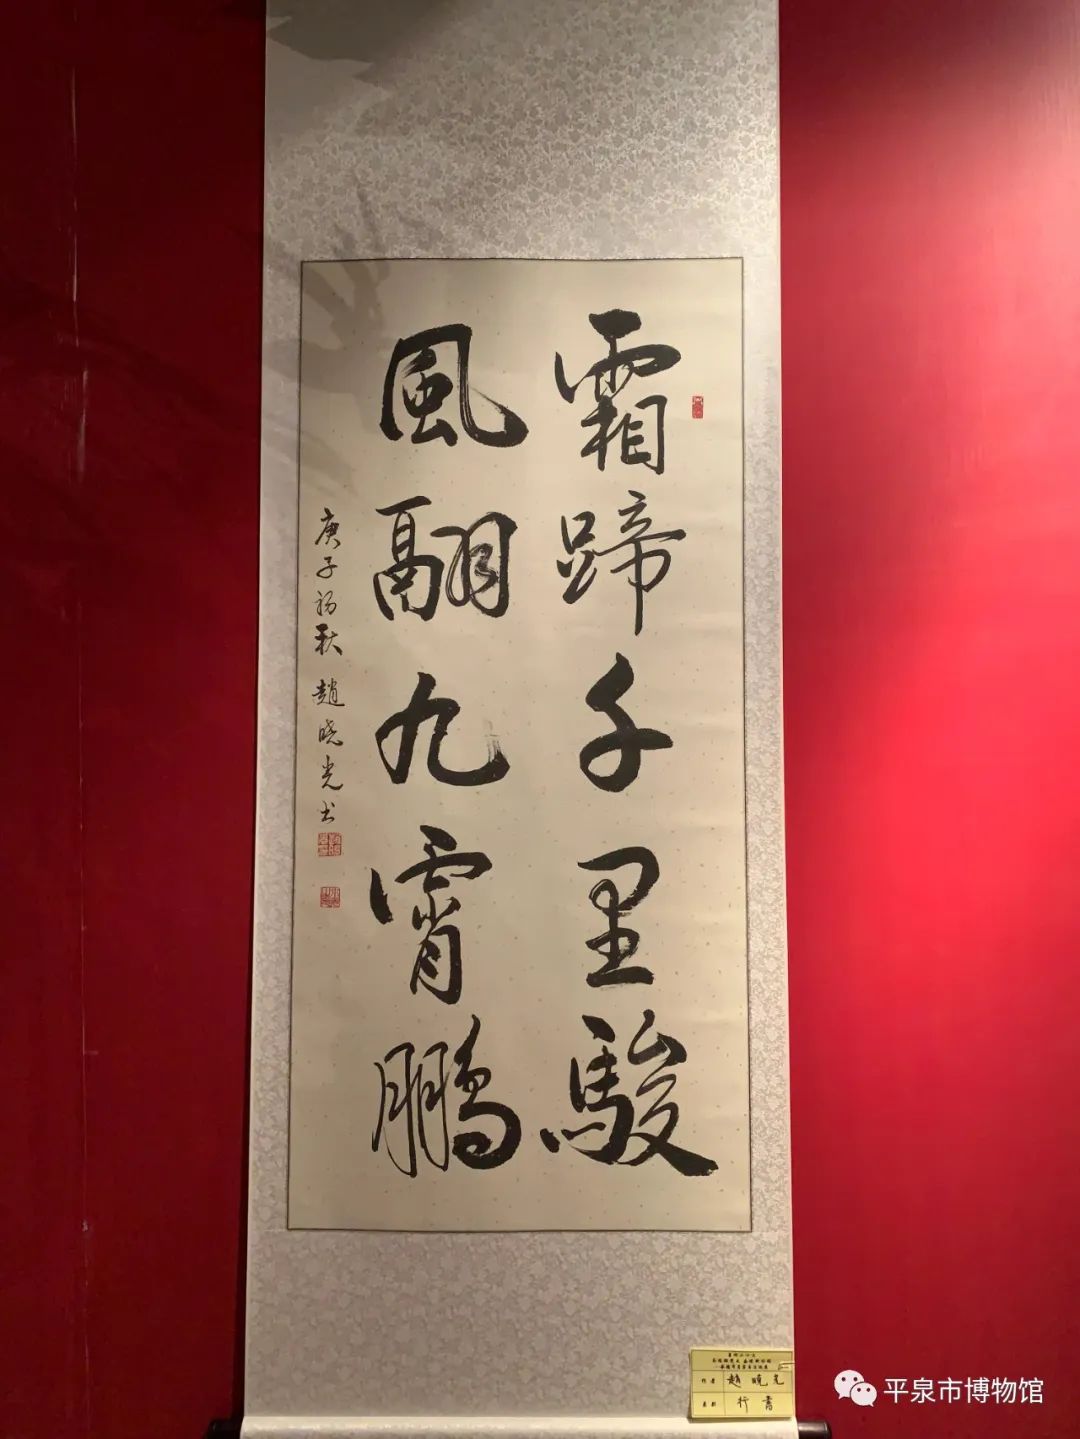 霜蹄千里駿
風翮九霄鵬
庚子初秋 趙晓光书
作者 趙曉光
行書
平泉市博物馆